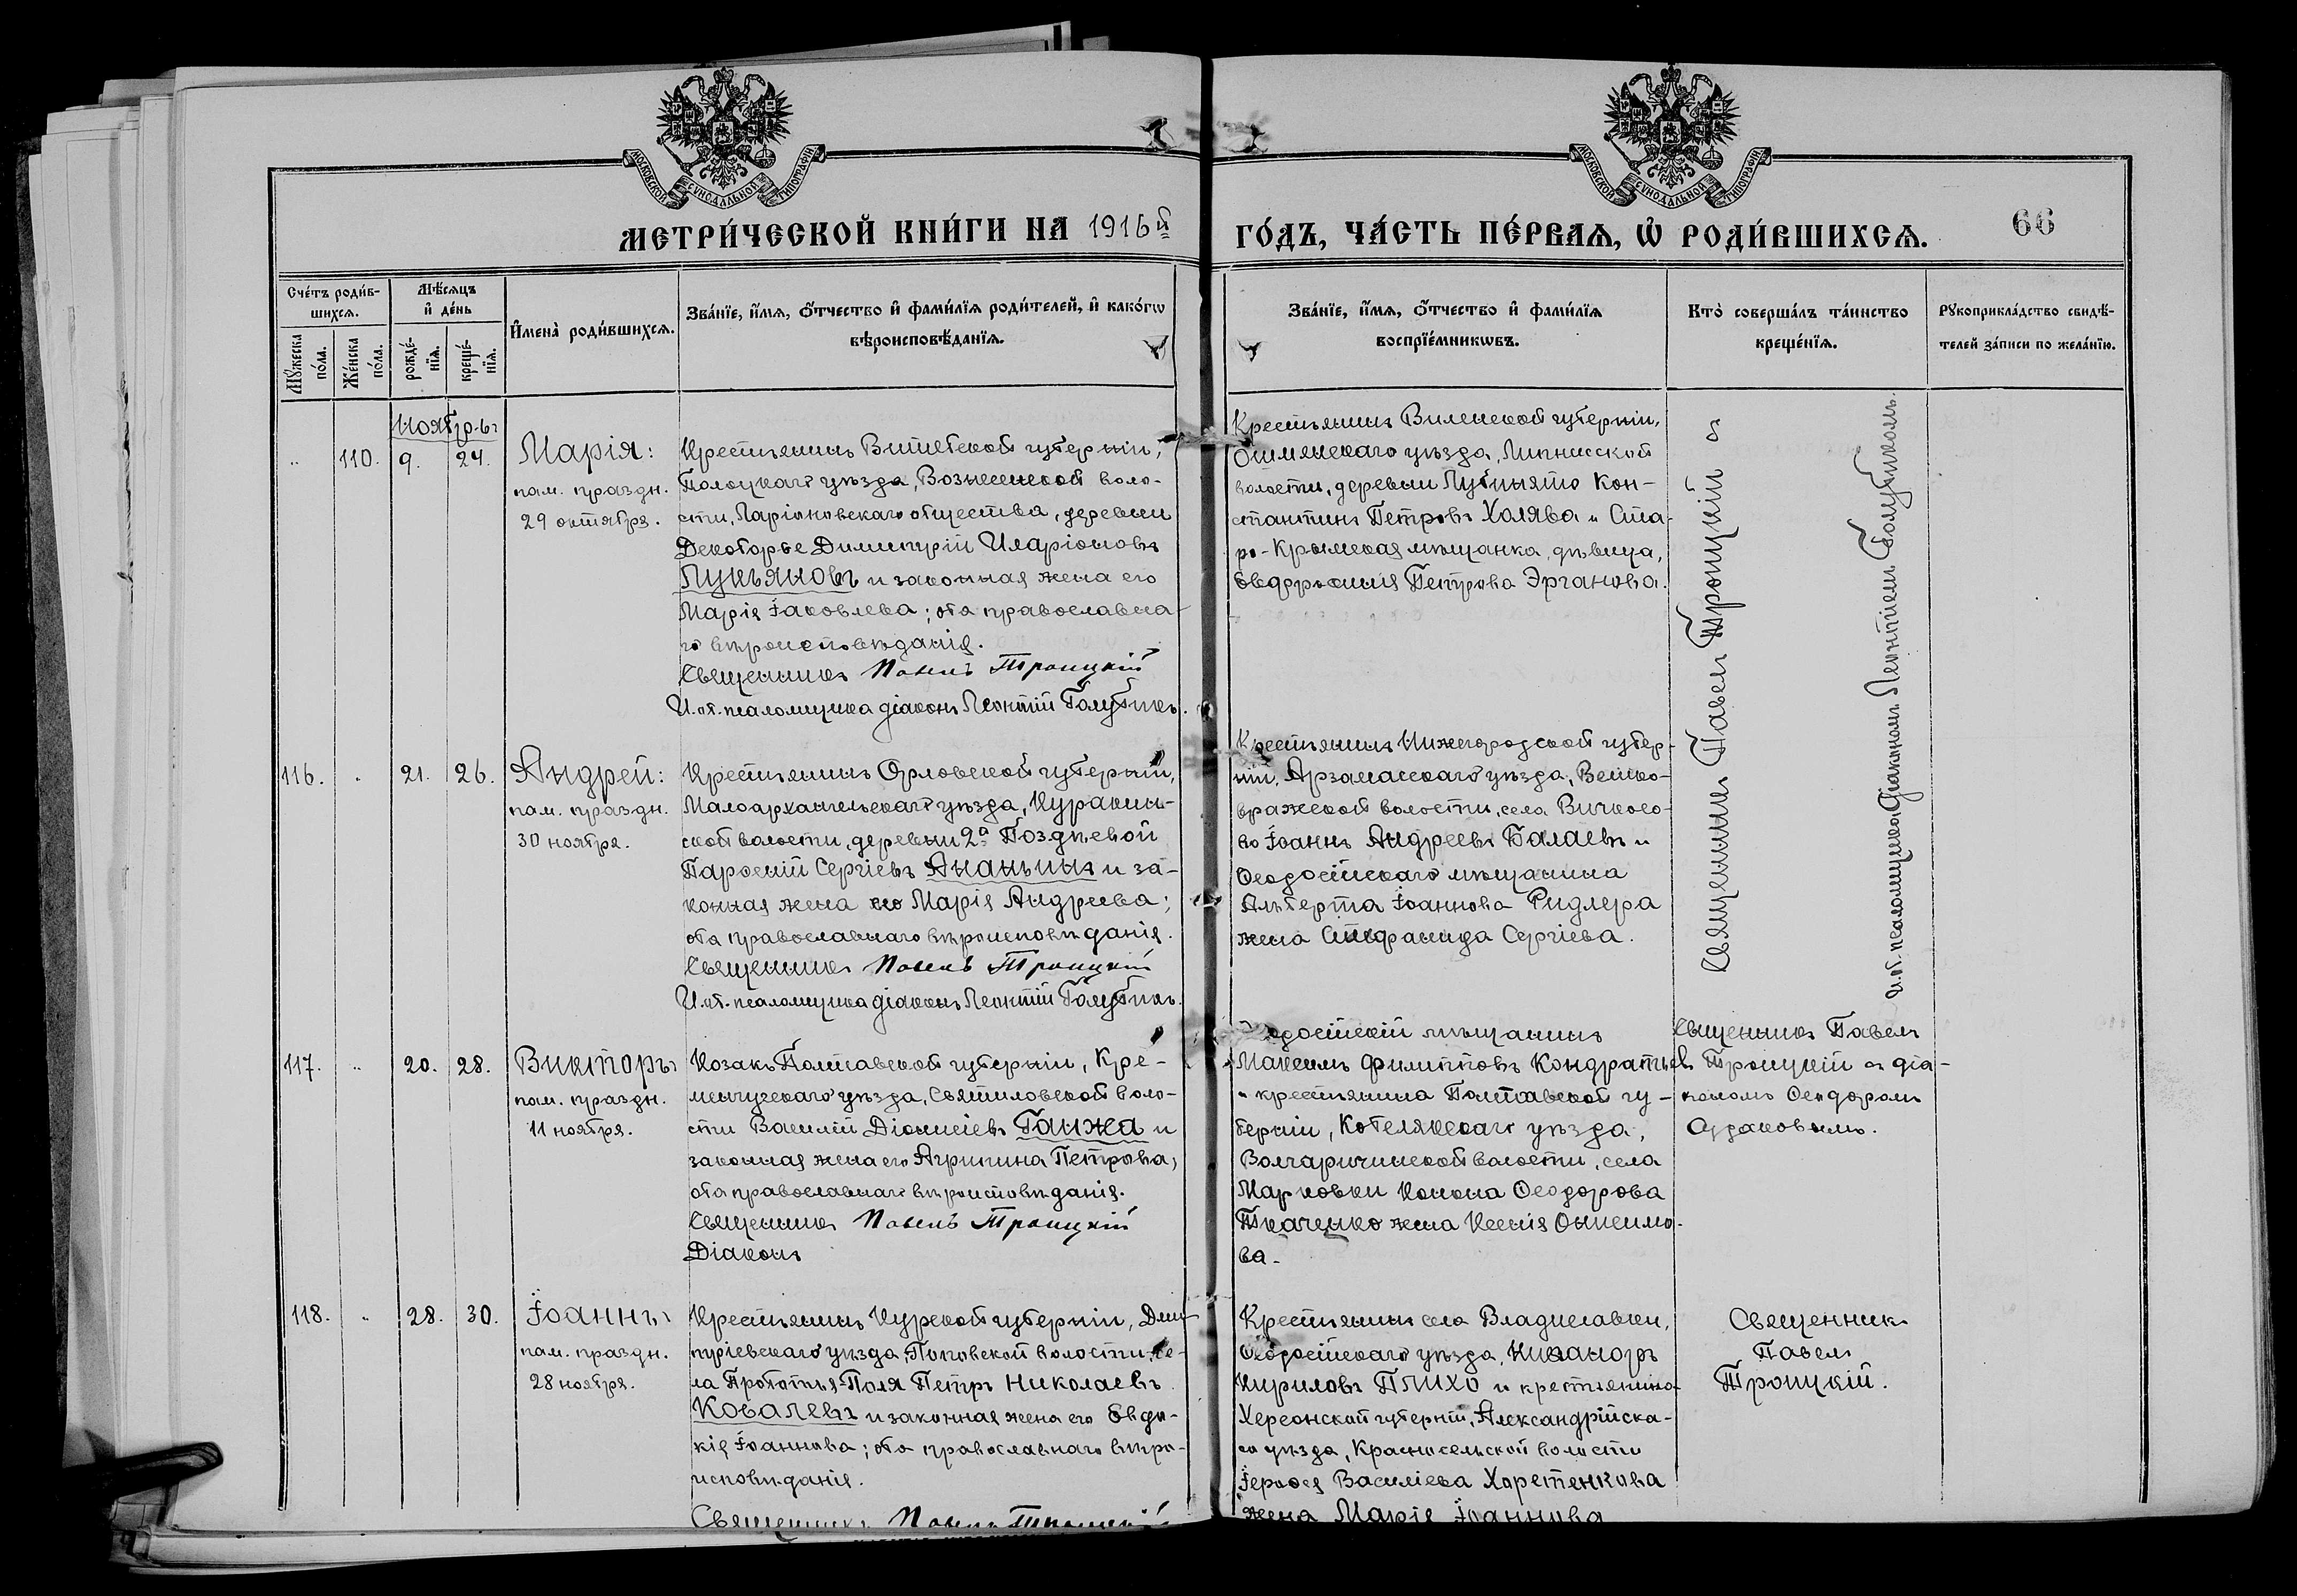 МОСКОВСКОЙ СѴНОДАЛЬНОЙ ТИПОГРАФІИ
МОСКОВСКОЙ СѴНОДАЛЬНОЙ ТИПОГРАФІИ
МЕТРИ́ЧЕСКОЙ КНИ́ГИ НА 1916й
ГО́ДЪ, ЧА́СТЬ ПЕ́РВАѦ, Ѽ РОДИ́ВШИХСѦ.
66
Сче́тъ роди́в-
шихсѧ.
Мꙋ́жеска по́ла.
Же́нска по́ла.
Мѣ́сѧцъ
и҆ де́нь
рожде́-
нїѧ.
креще́-
нїѧ.
И҆мена̀ роди́вшихсѧ.
Зва́нїе, и҆́мѧ, ѻ҆́тчество и҆ фами́лїѧ роди́телей, и҆ како́гѡ
вѣроисповѣ́данїѧ.
Зва́нїе, и҆́мѧ, ѻ҆́тчество и҆ фами́лїѧ
воспрїе́мникѡвъ.
Кто̀ соверша́лъ та́инство
креще́нїѧ.
Рꙋкоприкла́дство свидѣ́-
телей за́писи по жела́нїю.
Ноябрь
" 110. 9. 24.
Марія:
пам. праздн.
29 октября.
Крестьянинъ Витебской губерніи,
Полоцкаго уѣзда, Вознесенской воло-
сти, Ларіоновскаго общества, деревни
Димитрій Иларіоновъ
Лукьяновъ и законная жена его
Марія Іаковлева; оба православна-
го вѣроисповѣданія.
Священникъ Павелъ Троицкій
И. об. псаломщика діаконъ Леонтій Голубчикъ.
Крестьянинъ Виленской губерніи,
Ошмянскаго уѣзда, Липнисской
волости, деревни Кон-
стантинъ Петровъ Халява и Ста-
ро-Крымская мѣщанка, дѣвица,
Евфросинія Петрова Эрганова.
Священникъ Павелъ Троицкій съ
и. об. псаломщика Діакономъ Леонтіемъ Голубчикомъ.
116. " 21. 26.
Андрей:
пам. праздн.
30 ноября.
Крестьянинъ Орловской губерніи,
Малоархангельскаго уѣзда, Куракин-
ской волости, деревни 2а Поздѣевой
Парѳеній Сергіевъ Ананьинъ и за-
конная жена его Марія Андреева;
оба православнаго вѣроисповѣданія.
Священникъ Павелъ Троицкій
И. об. псаломщика діаконъ Леонтій Голубчикъ.
Крестьянинъ Нижегородской губер-
ніи, Арзамасскаго уѣзда,
вражской волости, села
во Іоаннъ Андреевъ Балаевъ и
Ѳеодосійскаго мѣщанина
Альберта Іоаннова Ридлера
жена Стефанида Сергіева.
117. " 20. 28.
Викторъ
пам. праздн.
11 ноября.
Козакъ Полтавской губерніи, Кре-
менчугскаго уѣзда, Святиловской воло-
сти Василій Діонисіевъ Ганжа и
законная жена его Агриппина Петрова;
оба православнаго вѣроисповѣданія.
Священникъ Павелъ Троицкій
Діаконъ
Ѳеодосійскій мѣщанинъ
Максимъ Филипповъ Кондратьевъ
и крестьянина Полтавской гу-
берніи, Кобелякскаго уѣзда,
волости, села
Марковки Конона Ѳеодорова
Ткаченко жена Ксенія Онисимо-
ва.
Священникъ Павелъ
Троицкій съ діа-
кономъ Ѳеодоромъ
118. " 28. 30.
Іоаннъ
пам. праздн.
28 ноября.
Крестьянинъ Курской губерніи, Дми-
тріевскаго уѣзда, Поповской волости, се-
ла Поля Петръ Николаевъ
Ковалевъ и законная жена его Евдо-
кія Іоаннова; оба православнаго вѣро-
исповѣданія.
Священникъ Павелъ Троицкій
Крестьянинъ села Владиславки,
Ѳеодосійскаго уѣзда, Никаноръ
Кириловъ Плихо и крестьянина
Херсонской губерніи, Александрійска-
го уѣзда, Красносельской волости
Іероѳея Василіева Харетенкова
жена Марія Іоаннова
Священникъ
Павелъ
Троицкій.